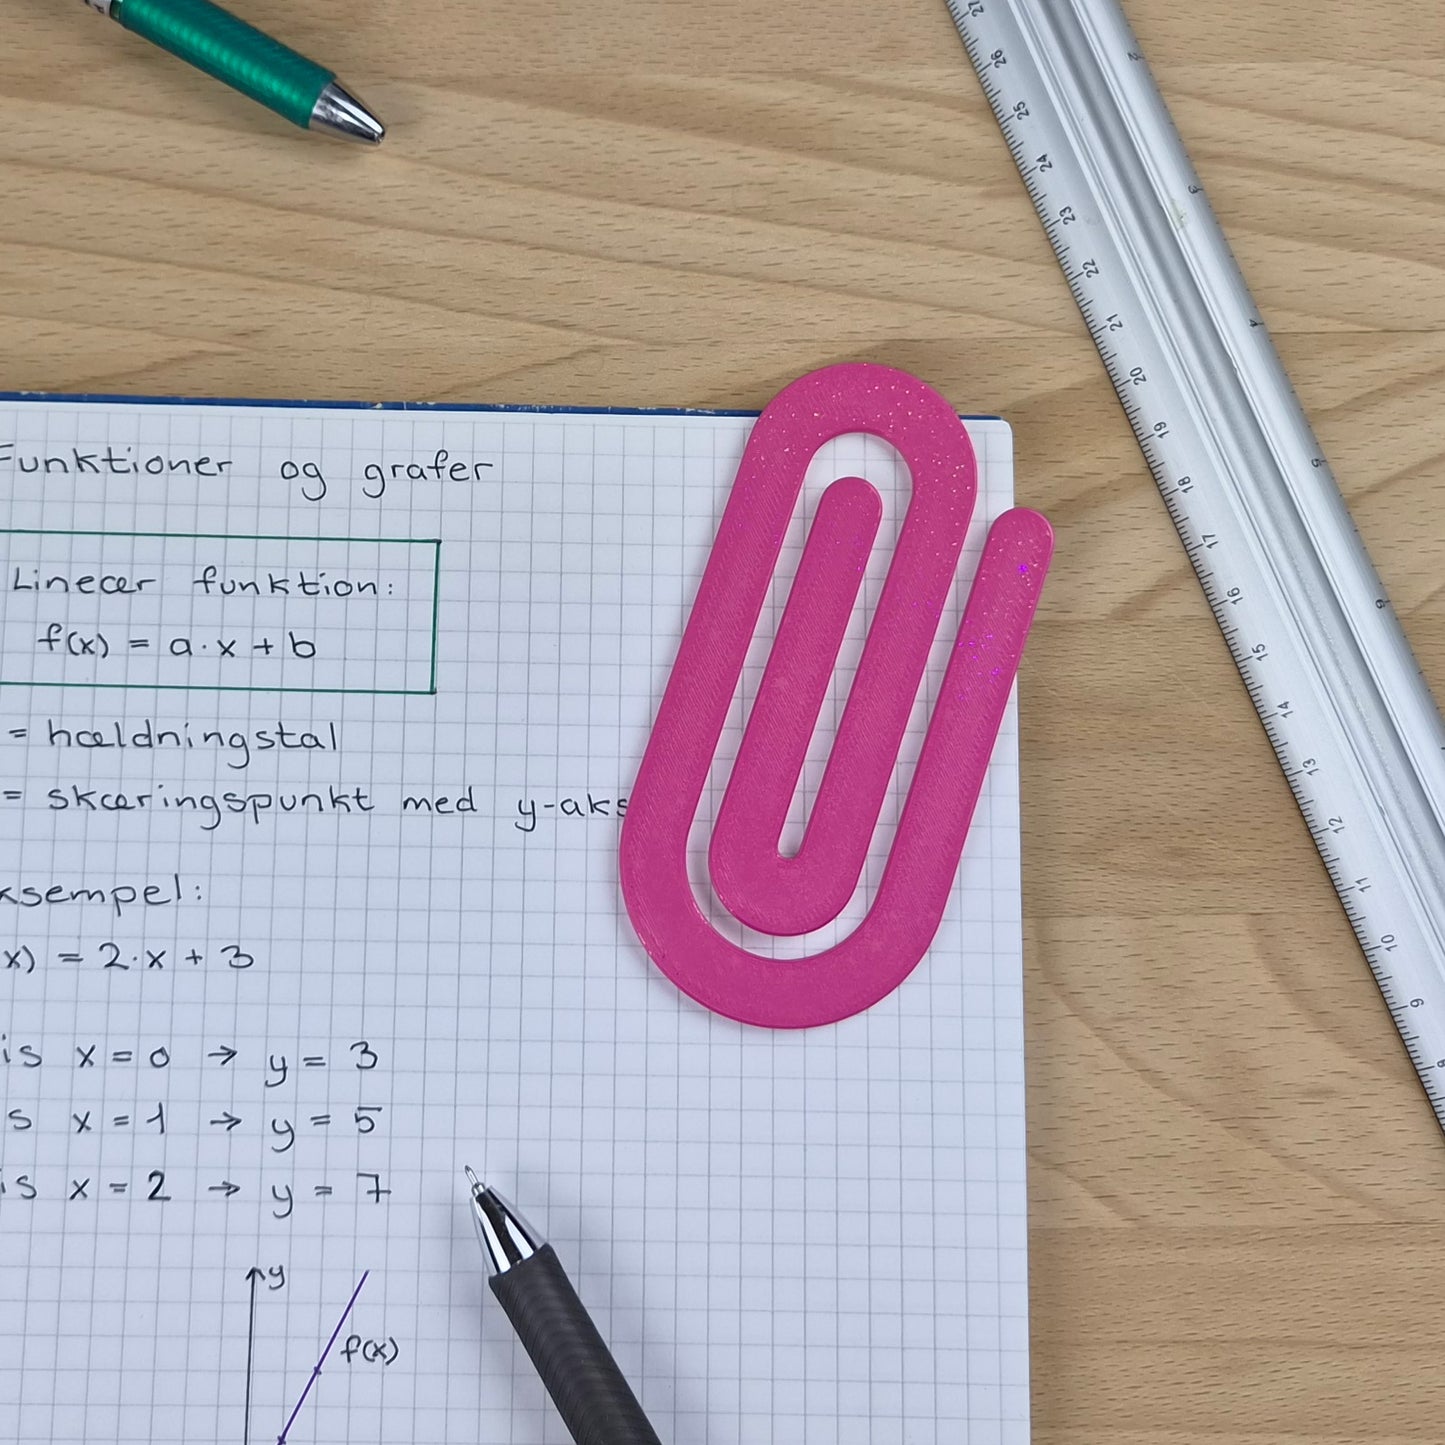 Funktioner og grafer
Lineær funktion:
f(x) = a·x + b
= hældningstal
= skæringspunkt med y-aks
ksempel:
x) = 2·x + 3
is x = 0 → y = 3
s x = 1 → y = 5
is x = 2 → y = 7
y
f(x)
27
26
25
24
23
22
21
20
19
18
17
16
15
14
13
12
11
10
9
8
2
3
4
5
6